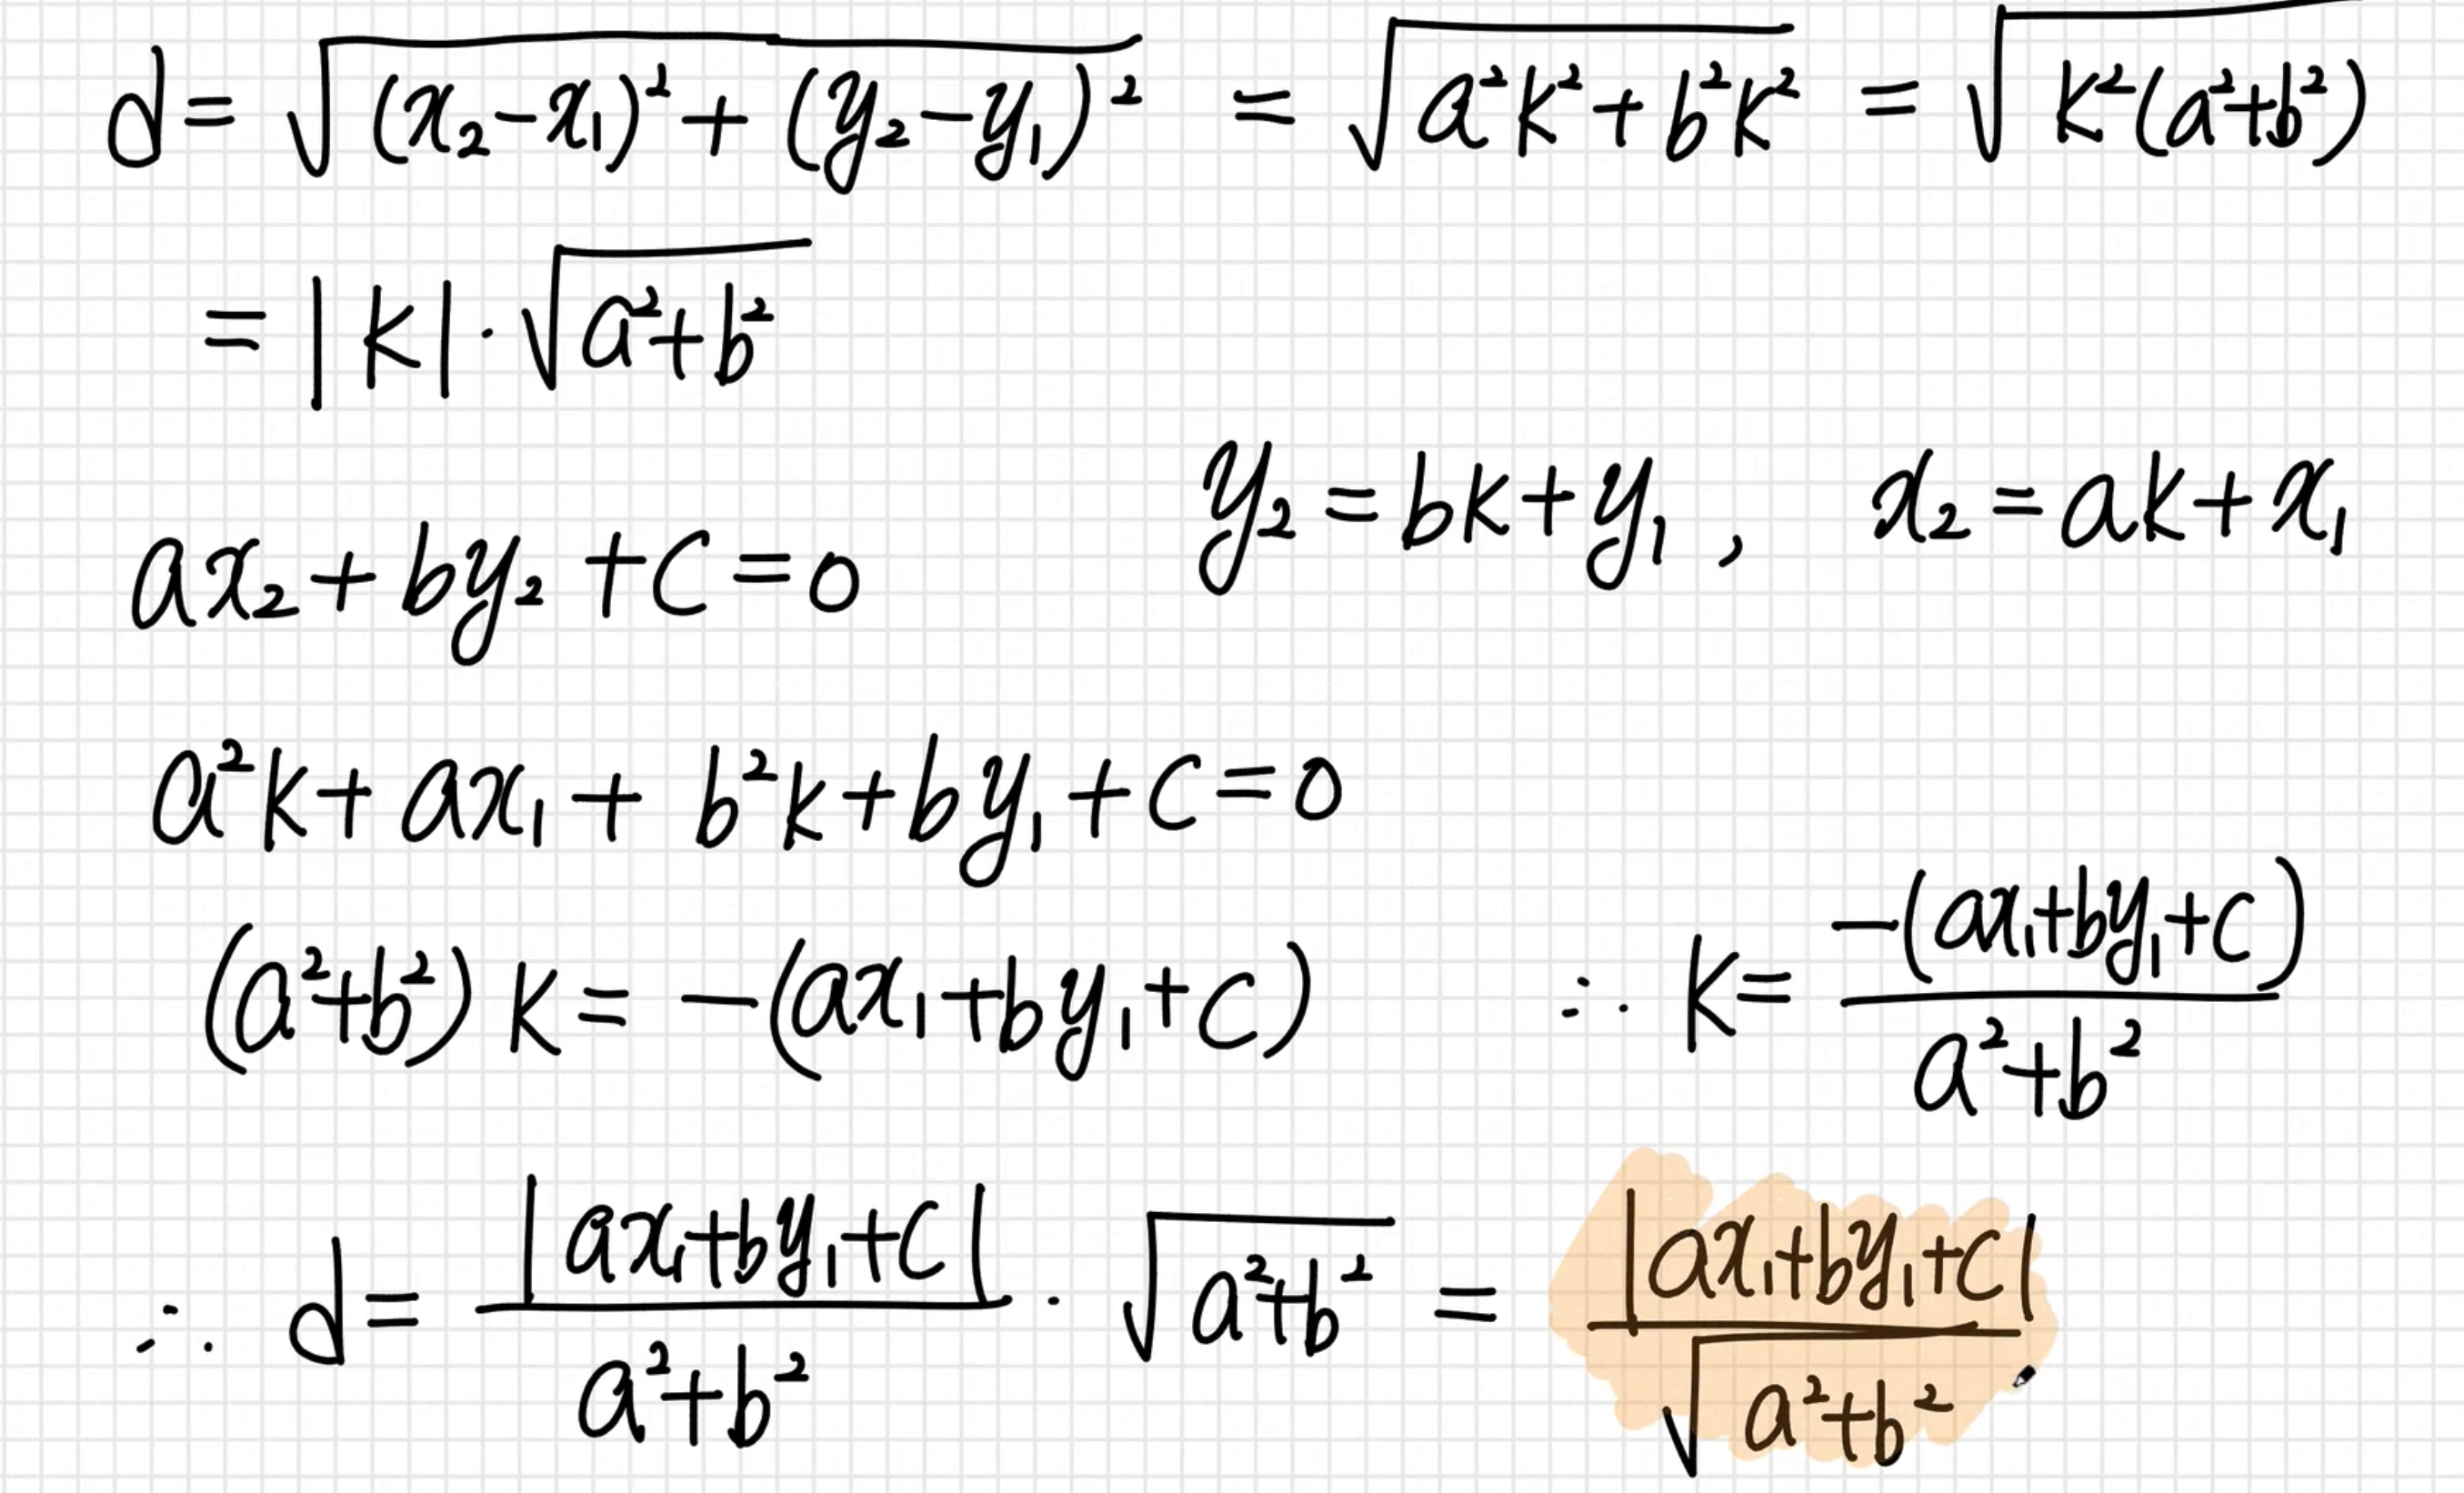 d = √((x₂-x₁)² + (y₂-y₁)²) = √(a²k² + b²k²) = √(k²(a²+b²))
= |k| · √(a²+b²)
y₂ = bk + y₁ , x₂ = ak + x₁
ax₂ + by₂ + c = 0
a²k + ax₁ + b²k + by₁ + c = 0
(a²+b²) k = -(ax₁+by₁+c) ∴ k = -(ax₁+by₁+c) / (a²+b²)
∴ d = |ax₁+by₁+c| / (a²+b²) · √(a²+b²) = |ax₁+by₁+c| / √(a²+b²)